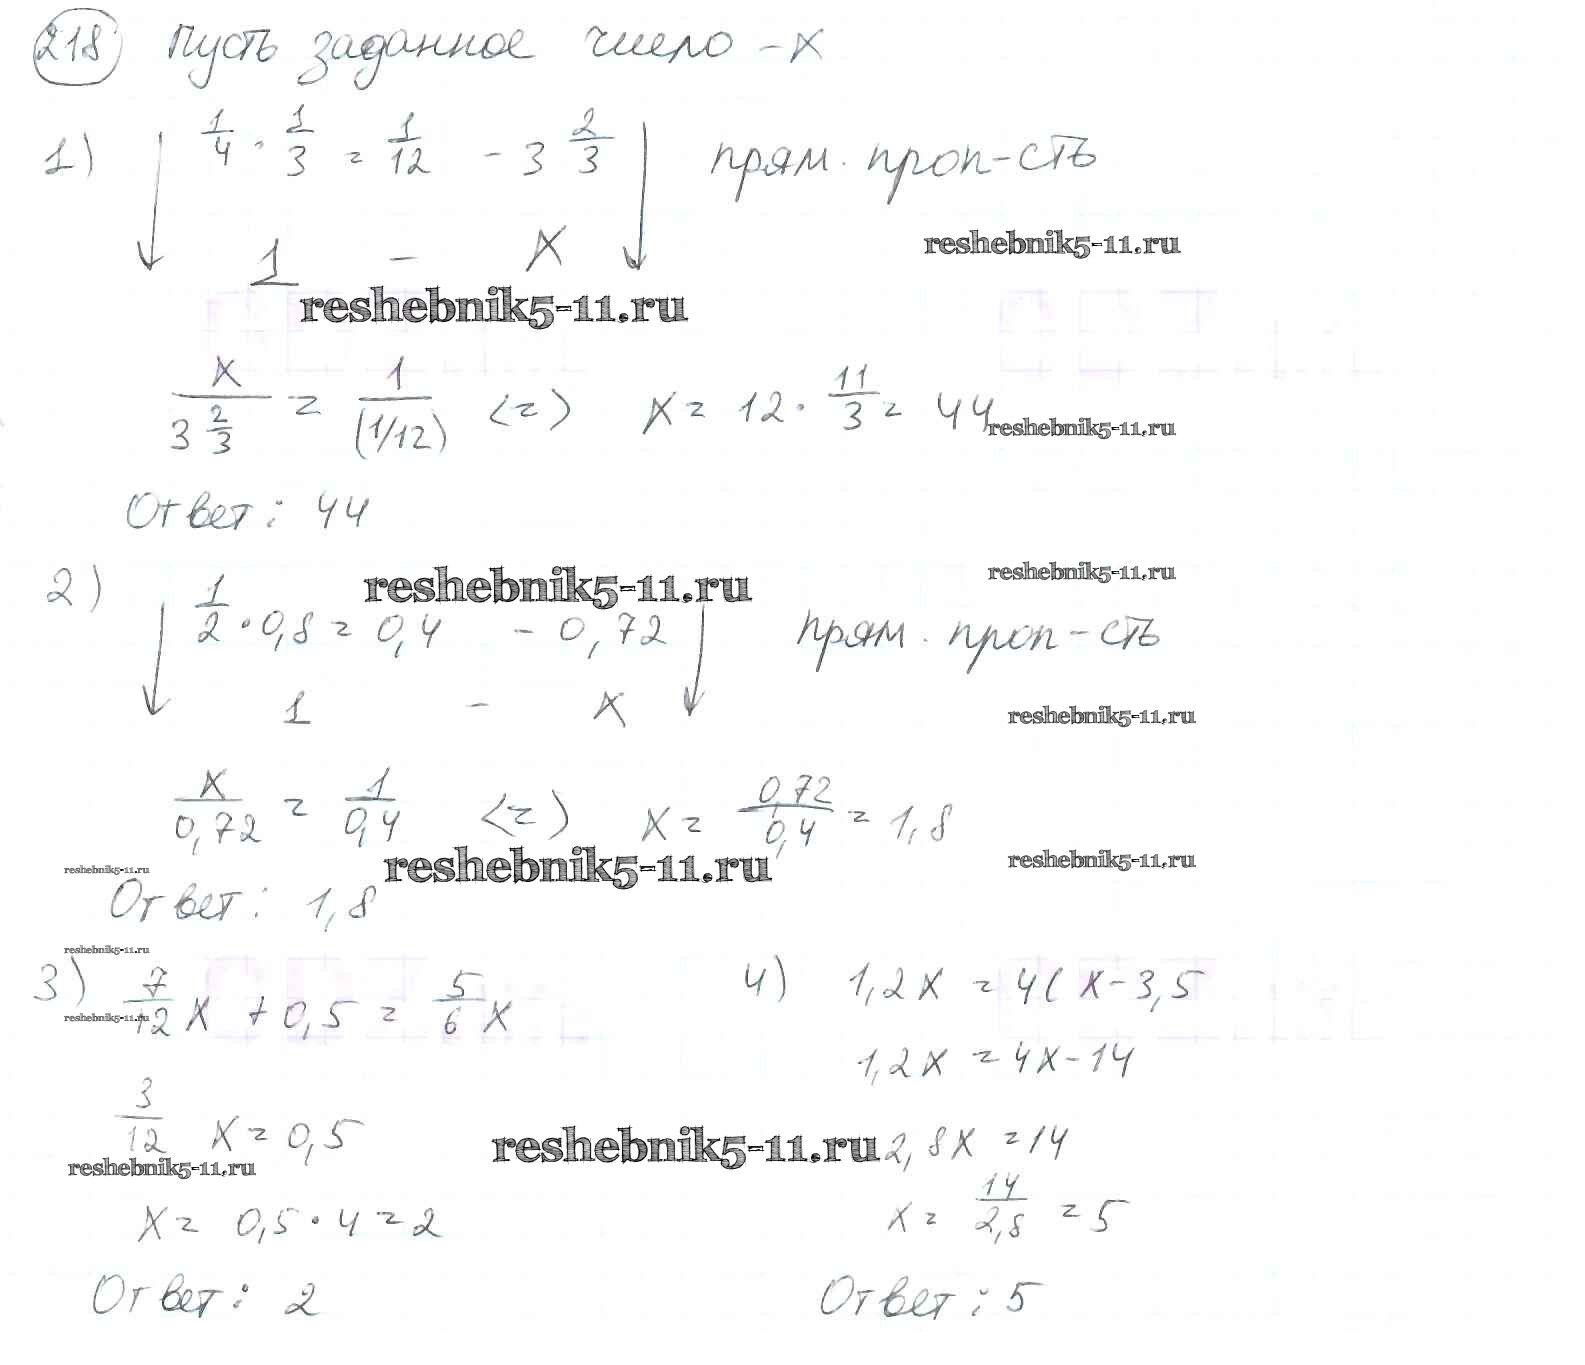 218 Пусть заданное число - x
1) 1/4 · 1/3 = 1/12 - 3 2/3 прям. проп-сть
reshebnik5-11.ru
1 - x
reshebnik5-11.ru
x / 3 2/3 = 1 / (1/12) <=> x = 12 · 11/3 = 44
reshebnik5-11.ru
Ответ: 44
2) 1/2 · 0,8 = 0,4 - 0,72 прям. проп-сть
reshebnik5-11.ru
reshebnik5-11.ru
1 - x
reshebnik5-11.ru
x / 0,72 = 1 / 0,4 <=> x = 0,72 / 0,4 = 1,8
reshebnik5-11.ru
reshebnik5-11.ru
reshebnik5-11.ru
Ответ: 1,8
reshebnik5-11.ru
3) 7/12 x + 0,5 = 5/6 x
reshebnik5-11.ru
3/12 x = 0,5
reshebnik5-11.ru
x = 0,5 · 4 = 2
Ответ: 2
4) 1,2x = 4(x - 3,5
1,2x = 4x - 14
reshebnik5-11.ru
2,8x = 14
x = 14 / 2,8 = 5
Ответ: 5